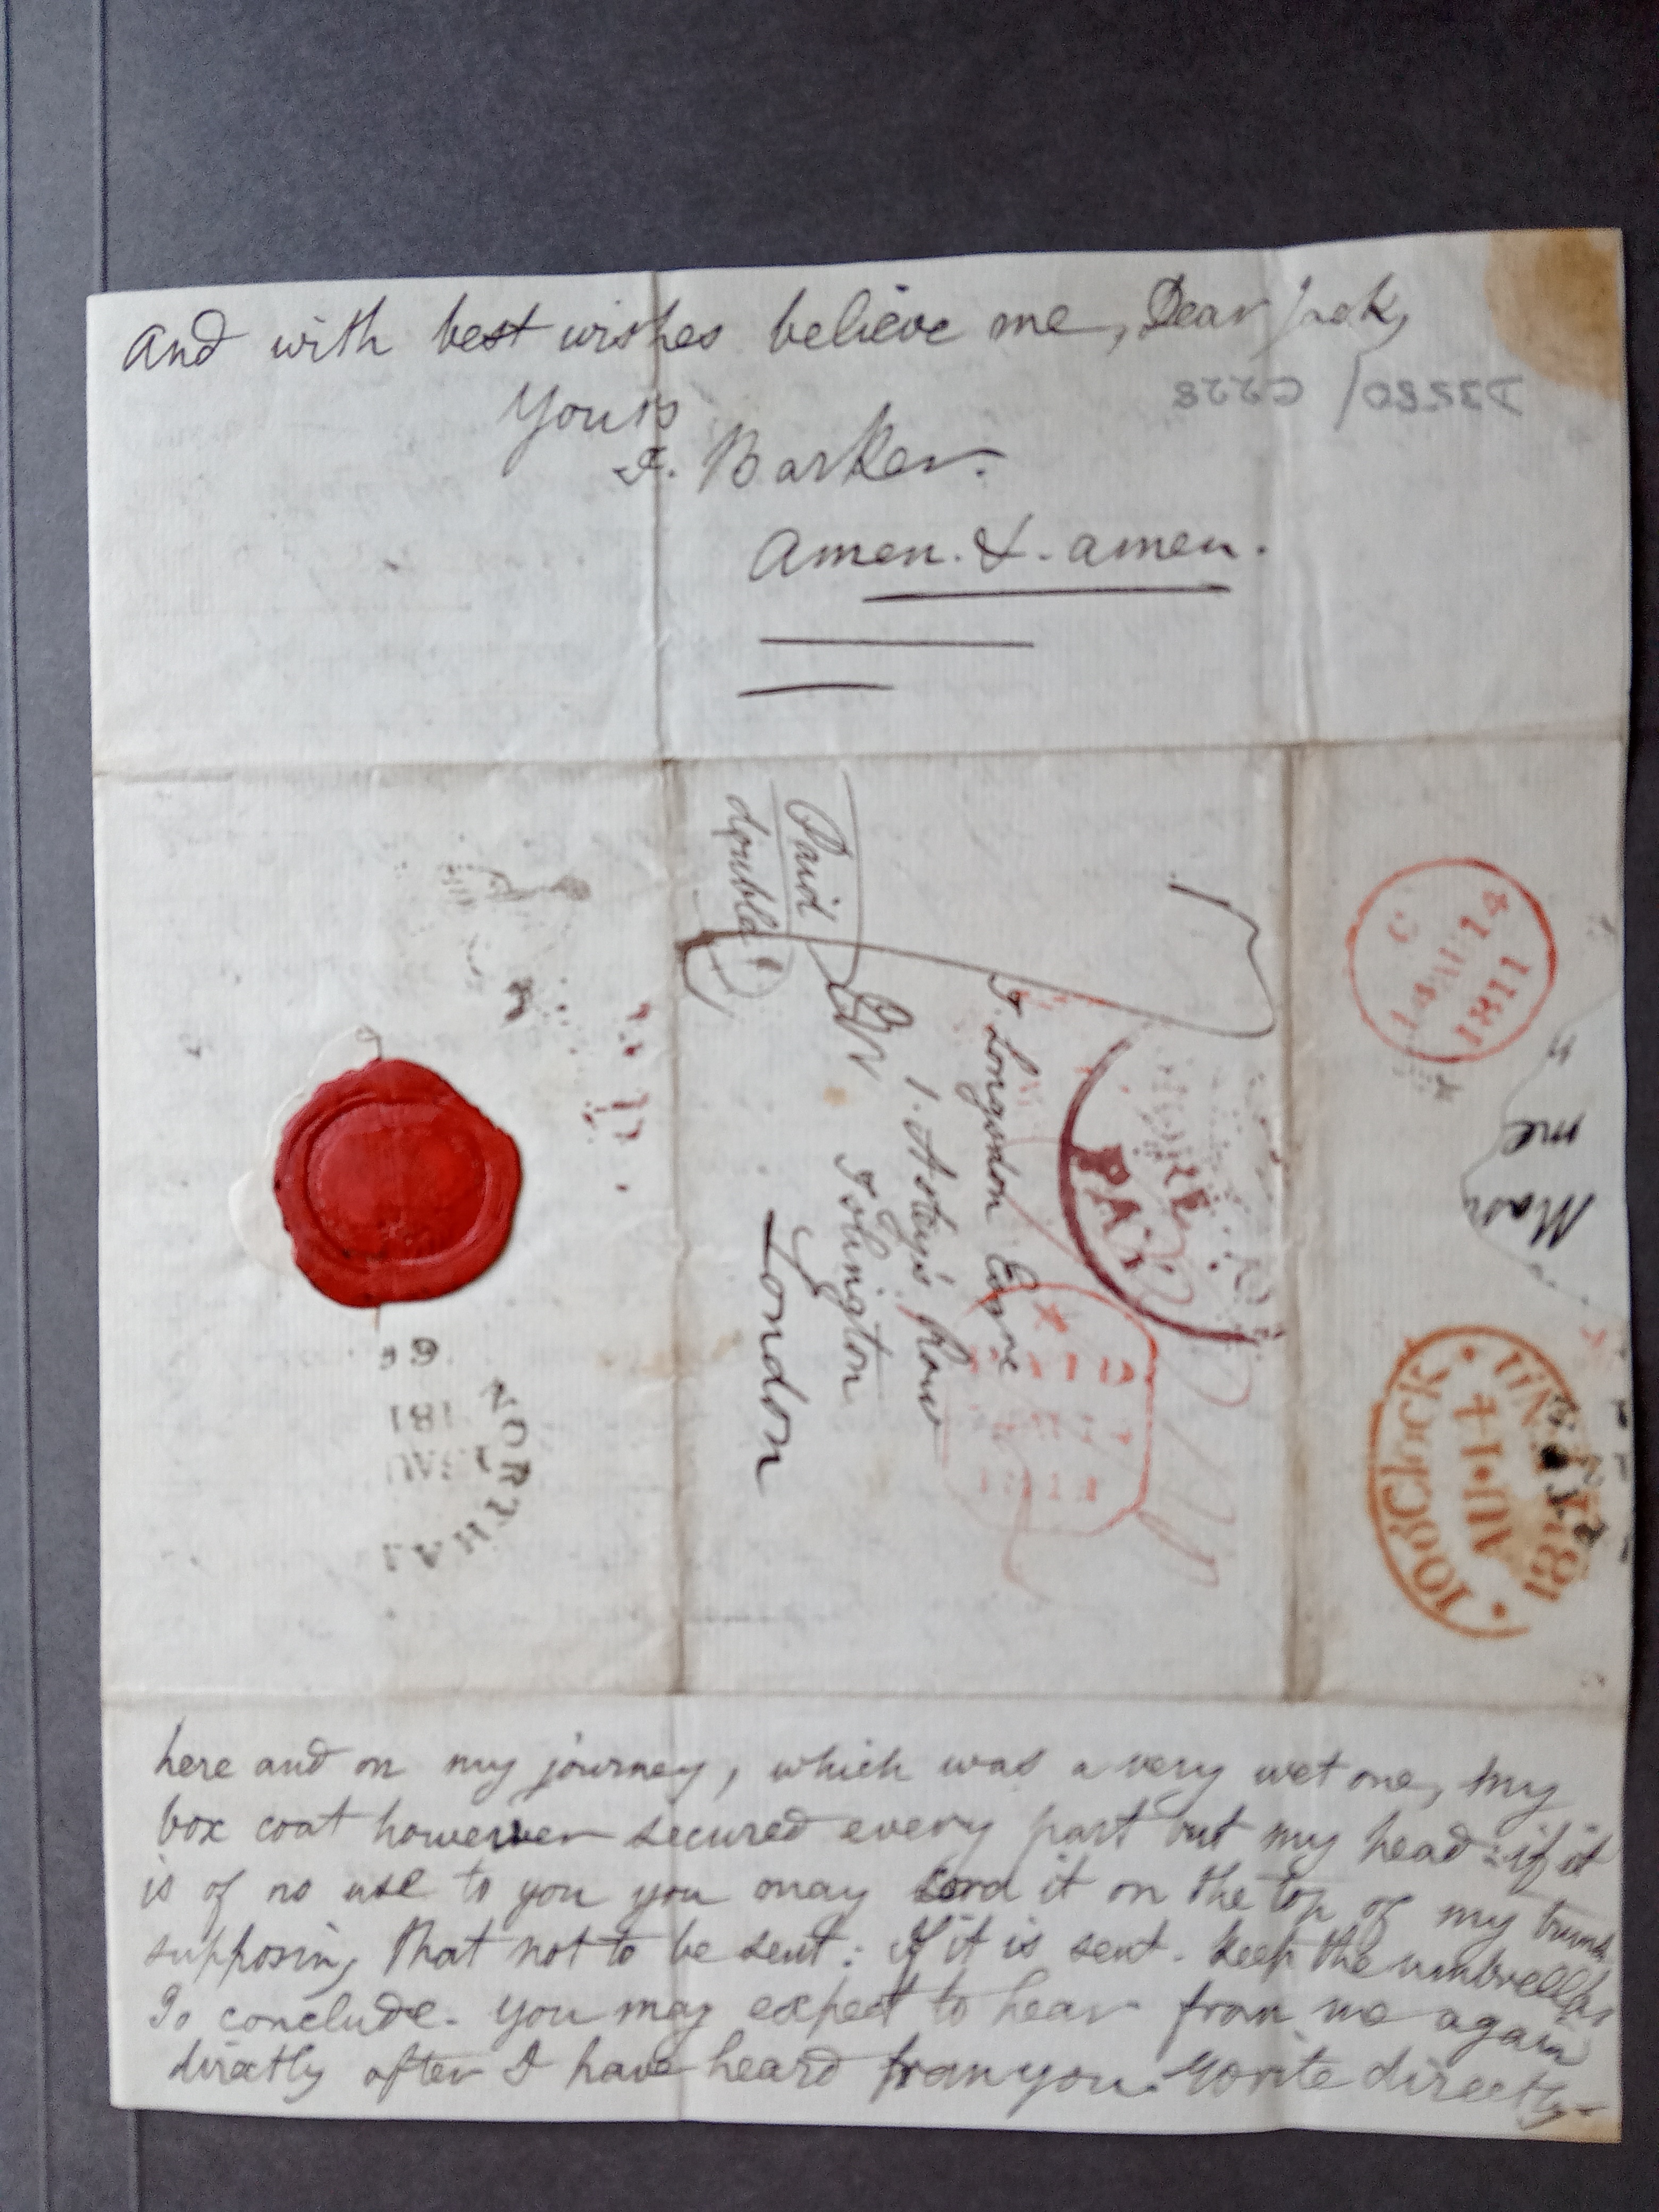 And with best wishes believe me, Dear Jack,
Yours
T. Barker.
Amen. & amen.
D3580/C228
Paid
double
J. Longsdon Esqre
1. Astey's Row
Islington
London
PAI
C
14 AU 14
1811
me
10 o'Clock
AU 14
1811
NORTHA
181
here and on my journey, which was a very wet one, my
box coat however secured every part but my head: if it
is of no use to you you may cord it on the top of my trunk
supposing that not to be sent: if it is sent. keep the umbrellas
To conclude. you may expect to hear from me again
directly after I have heard from you. Write directly